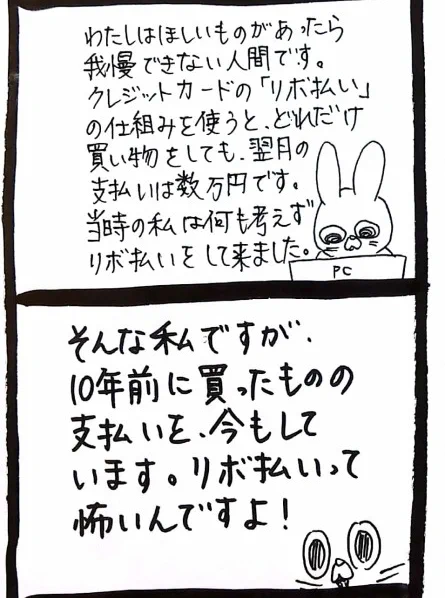 わたしはほしいものがあったら
我慢できない人間です。
クレジットカードの「リボ払い」
の仕組みを使うと、どれだけ
買い物をしても、翌月の
支払いは数万円です。
当時の私は何も考えず
リボ払いをして来ました。
PC
そんな私ですが、
10年前に買ったものの
支払いを、今もして
います。リボ払いって
怖いんですよ！